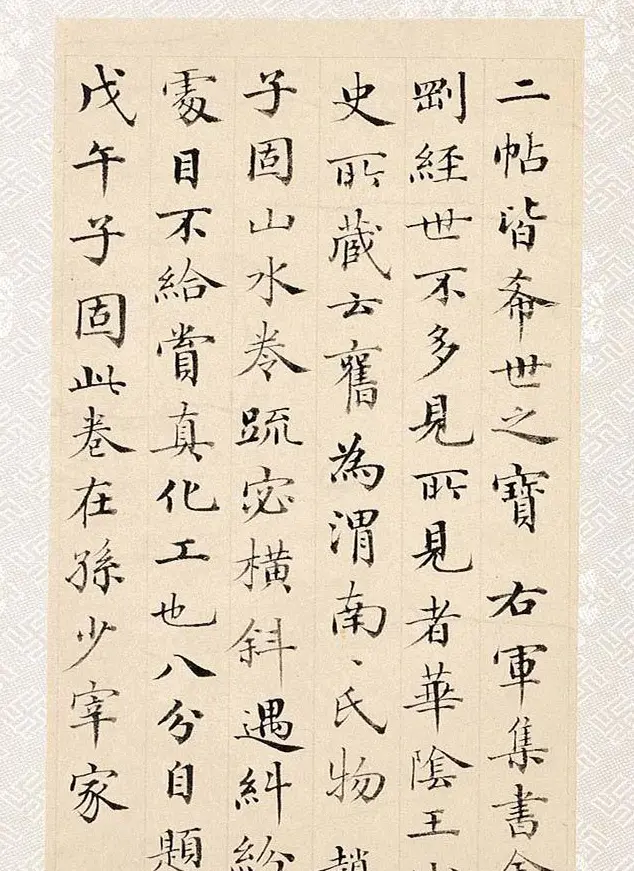 二帖皆希世之寶 右軍集書金
剛經世不多見所見者華陰王
史所藏云舊為渭南、氏物 趙
子固山水卷疏密橫斜遇糾紛
處目不給賞真化工也八分自題
戊午子固此卷在孫少宰家